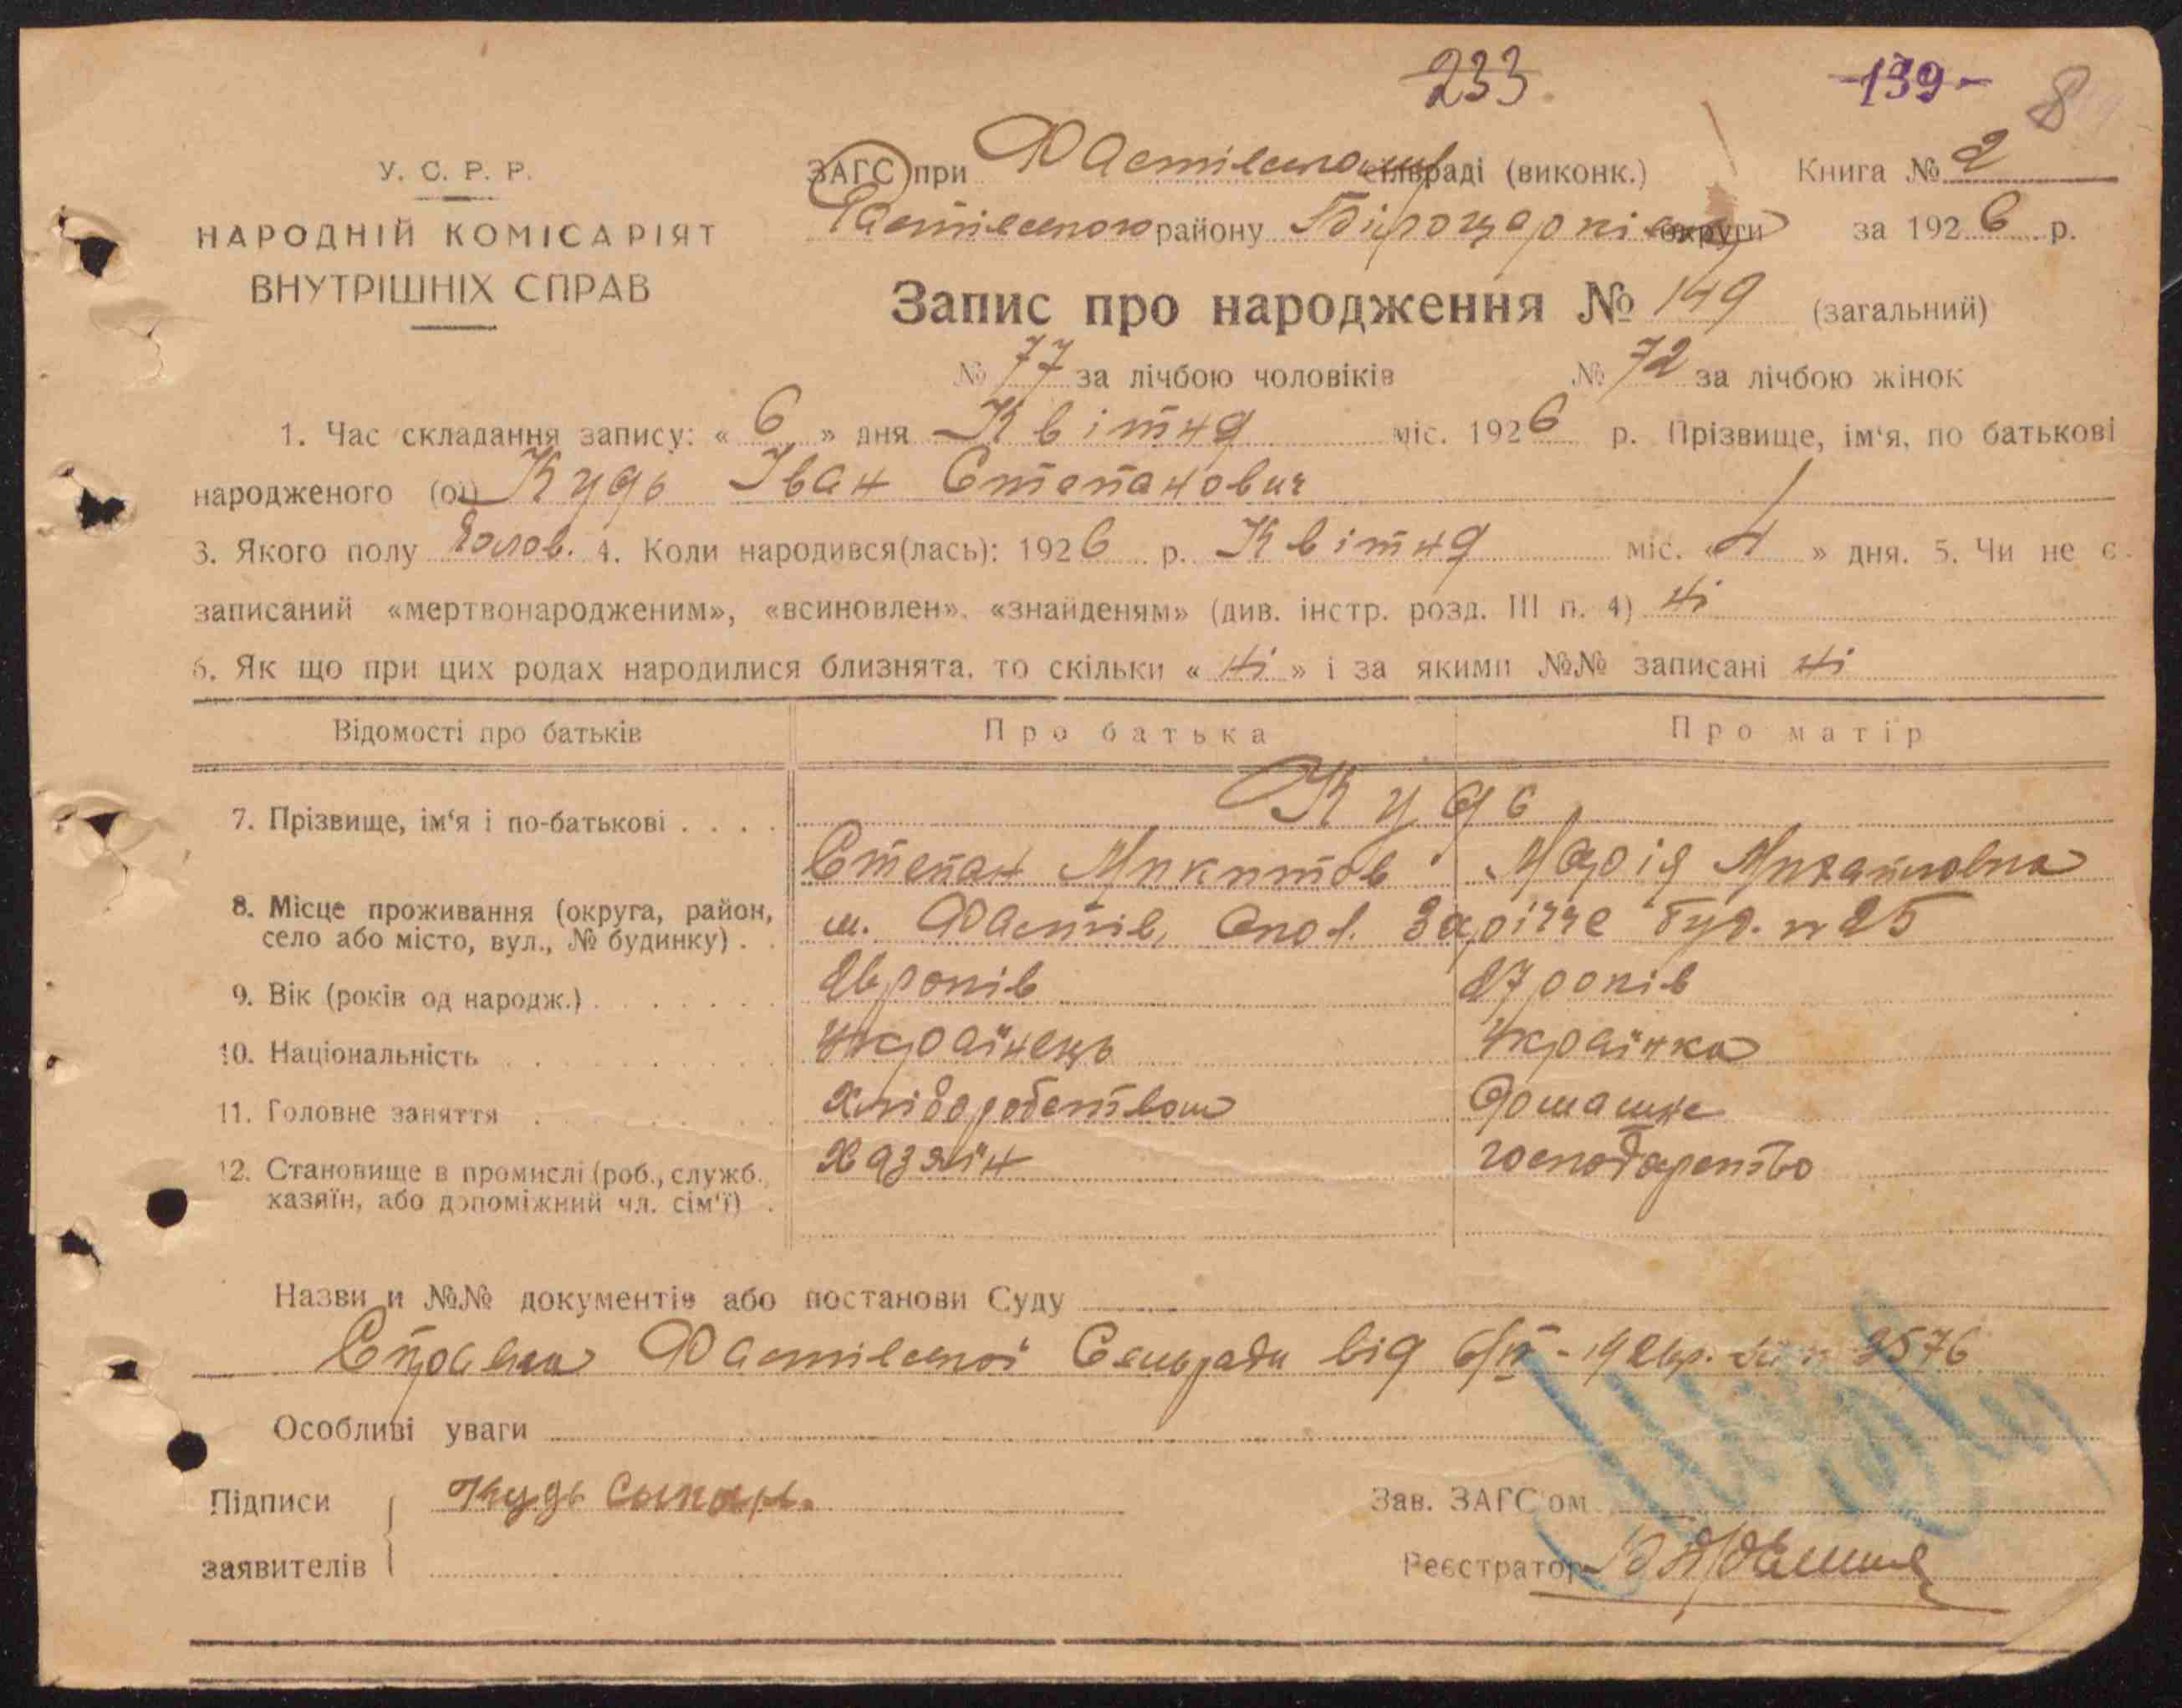 233
-139-
8
У. С. Р. Р.
НАРОДНІЙ КОМІСАРІЯТ
ВНУТРІШНІХ СПРАВ
ЗАГС при Фастівською сільраді (виконк.) Книга № 2
Фастівського району Білоцерків округи за 1926 р.
Запис про народження № 149 (загальний)
№ 77 за лічбою чоловіків № 72 за лічбою жінок
1. Час складання запису: « 6 » дня Квітня міс. 1926 р. Прізвище, ім'я, по батькові
народженого (ої) Кудь Іван Степанович
3. Якого полу Чолов. 4. Коли народився(лась): 1926 р. Квітня міс. « » дня. 5. Чи не є
записаний «мертвонародженим», «всиновлен», «знайденям» (див. інстр. розд. III п. 4) Ні
6. Як що при цих родах народилися близнята, то скільки « Ні » і за якими №№ записані Ні
Відомості про батьків Про батька Про матір
7. Прізвище, ім'я і по-батькові . . . . Кудь
Степан Микитов Марія Михайловна
8. Місце проживання (округа, район,
село або місто, вул., № будинку) . . м. Фастів, Заріччє буд. № 25
9. Вік (років од народж.) . . . . . . . 26 років 27 років
10. Національність . . . . . . . . . Українець Українка
11. Головне заняття . . . . . . . . Хліборобством Домашнє
12. Становище в промислі (роб., служб.,
хазяїн, або допоміжний чл. сім'ї) . Хазяїн господарство
Назви и №№ документів або постанови Суду
Справка Фастівської Сельради від 6/IV-1926р. за № 2576
Особливі уваги
Підписи Кудь
заявителів
Зав. ЗАГС'ом
Реєстратор